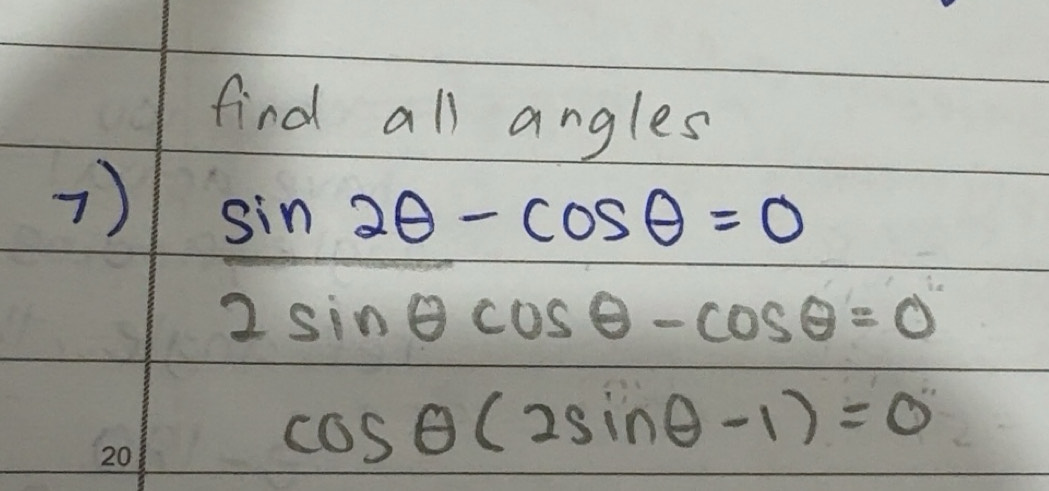 find all angles
7) sin 2θ - cosθ = 0
2 sin θ cos θ - cosθ = 0
cos θ ( 2sinθ - 1 ) = 0
20